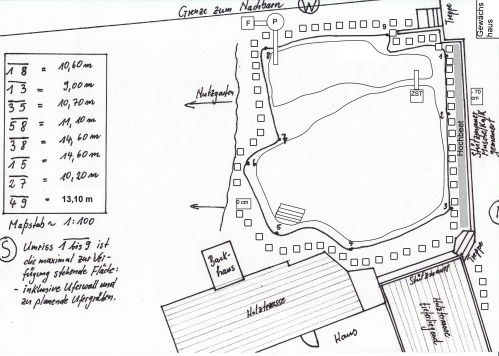 Grenze zum Nachbarn
W
F
P
9
Treppe
Gewächs
haus
8
1
18 = 10,60 m
13 = 9,00 m
35 = 10,70 m
58 = 11,10 m
38 = 14,60 m
15 = 14,60 m
27 = 10,20 m
49 = 13,10 m
Maßstab ~ 1:100
Nutzgarten
ZST
-70
cm
2
Hochbeet
Stützmauer
Muschelkalk
gemauert
7
6
0 cm
3
5
4
S
Umriss 1 bis 9 ist
die maximal zur Ver-
fügung stehende Fläche:
- inklusive Uferwall und
zu planende Ufergräben.
Back-
haus
Treppe
Stützmauer
Holzterrasse
Holzterrasse
tieferliegend
Haus